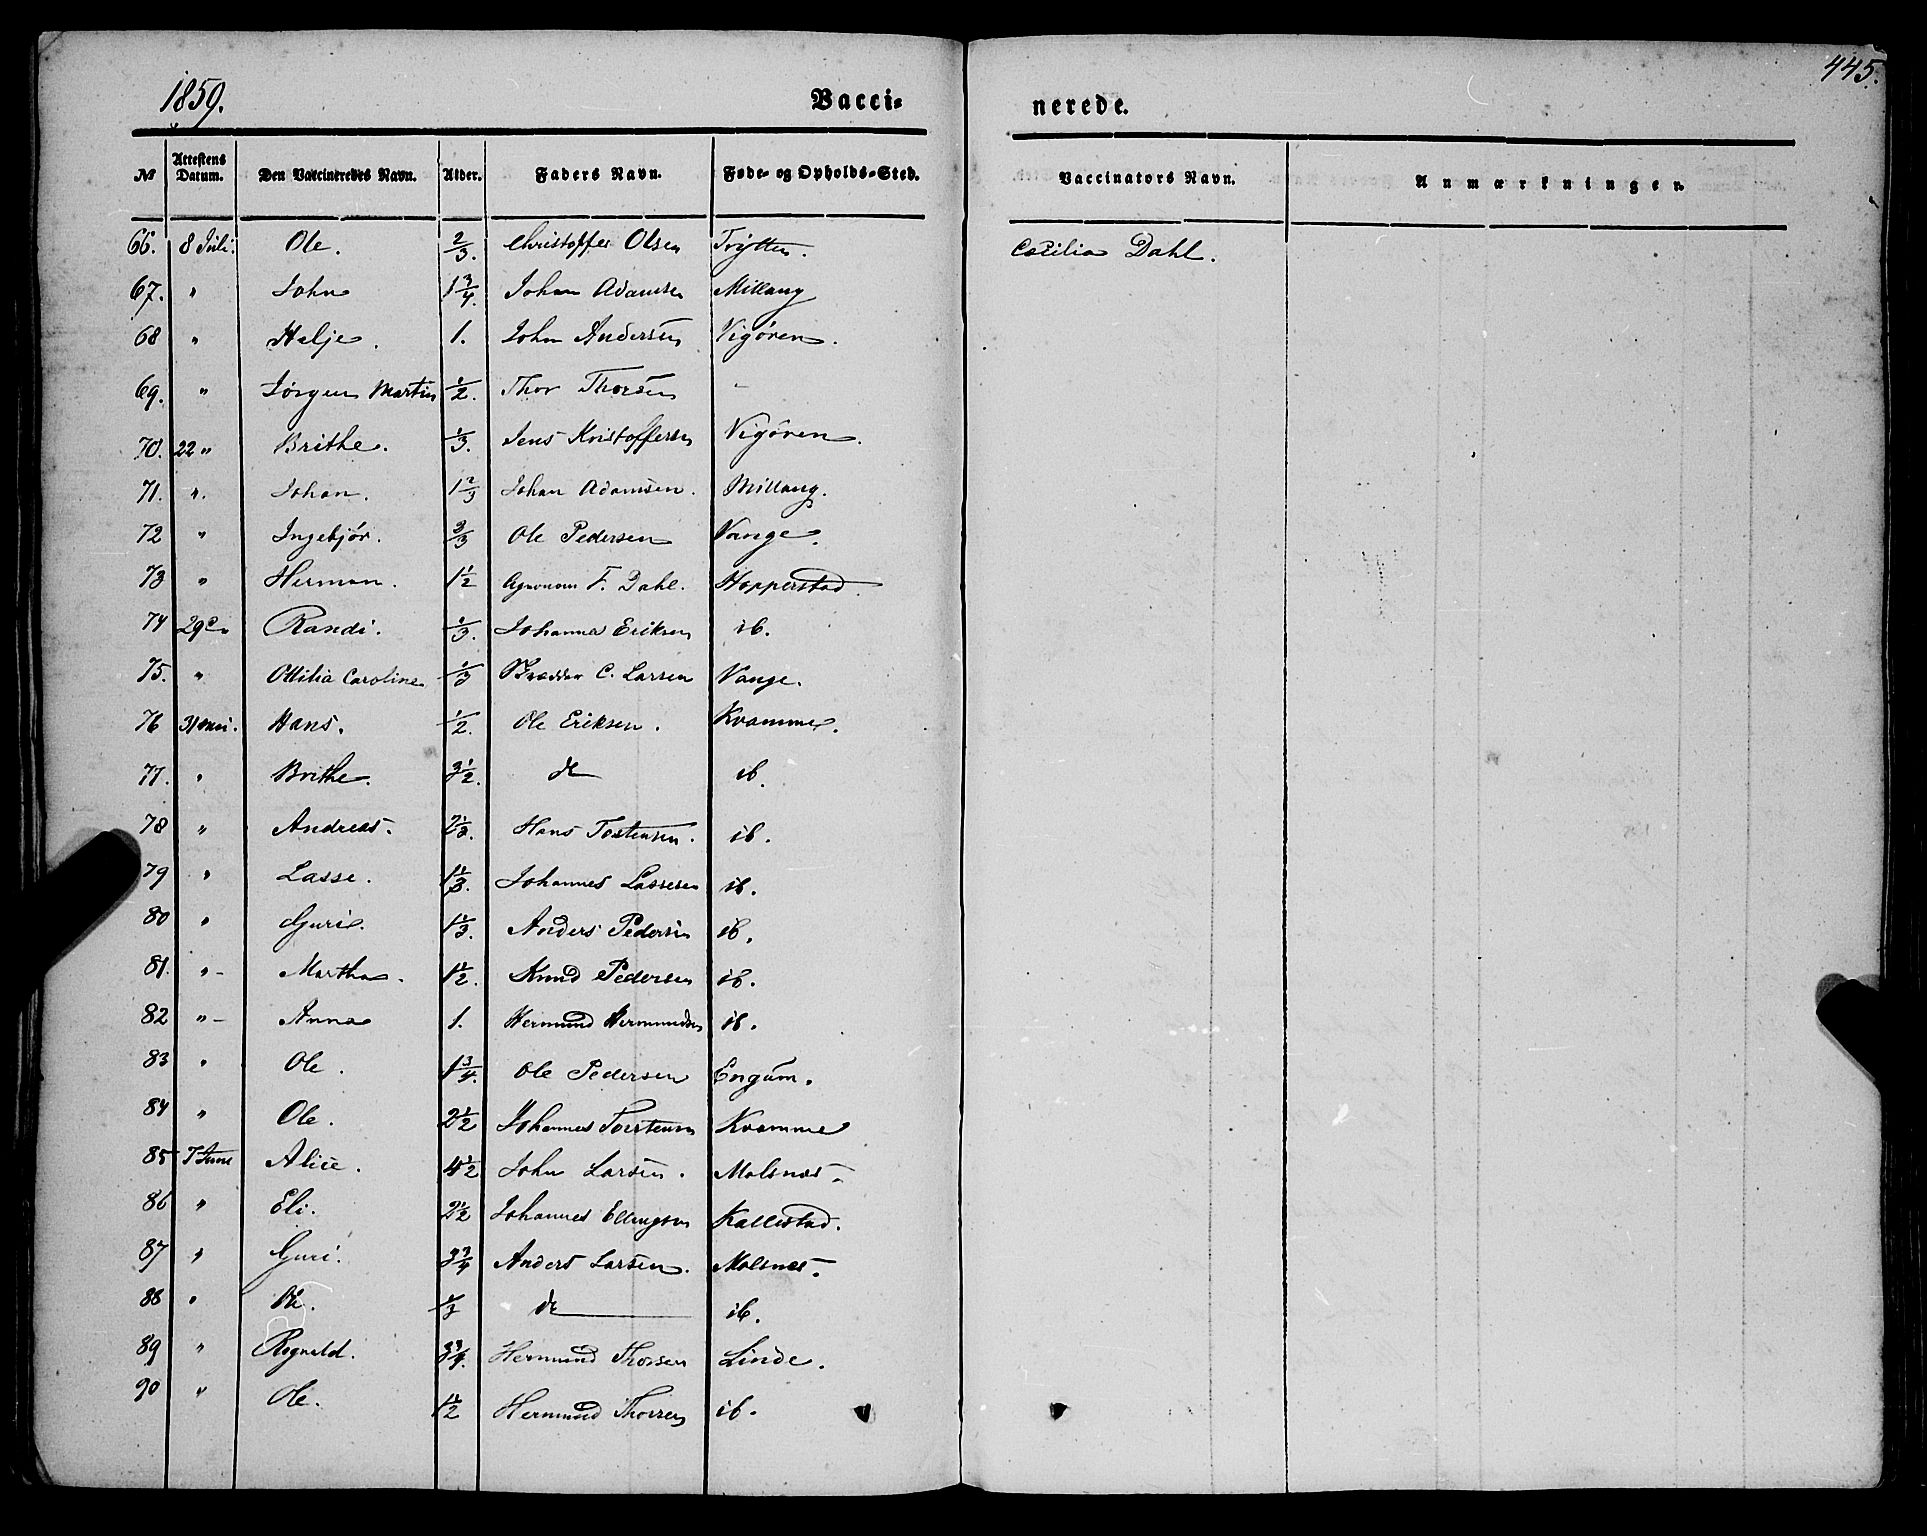 1859.
445.
Vacci-
nerede.
№ Attestens Datum. Den Vaccineredes Navn. Alder. Faders Navn. Føde- og Opholds-Sted. Vaccinators Navn. Anmærkninger.
66. 8 Juli. Ole. 2/3. Christoffer Olsen Cecilia Dahl.
67. " John 1 3/4. Johan Adamsen Millang
68 " Helje. 1. John Andersen Vigøren.
69. " Jørgen Martin 1/2. Thor Thorsen "
70. 22 " Brithe. 1/3. Jens Kristoffersen Vigøren.
71. ". Johan. 1 2/3 Johan Adamsen. Millang.
72 " Ingebjør. 2/3 Ole Pedersen Vange.
73 " Herman. 1 1/2 F. Dahl. Hopperstad.
74 29 Randi. 1/3. Johannes Eriksen ib.
75. " Ottilia Caroline 1/3 C. Larsen Vange.
76 31 Mai. Hans. 1/2. Ole Eriksen. Kvamme.
77. " Brithe. 3 1/2. do ib.
78 " Andreas. 2 1/2. Hans Tostensen. ib.
79 " Lasse. 1 1/3. Johannes Lassesen ib.
80 " Guri. 1 1/3. Anders Pedersen ib.
81. " - Martha. 1 1/2. Knud Pedersen ib.
82 " - Anna 1. Hermund Hermundsen ib.
83 " Ole. 1 3/4. Ole Pedersen Engum.
84 " Ole. 2 1/2 Johannes Torstensen Kvamme
85 7 Juni Alice. 4 1/2 John Larsen. Molsnes.
86 " Eli. 2 1/2 Johannes Ellingsen Kallestad.
87 " Guri. 3 3/4 Anders Larsen. Molsnes.
88 " Ole. 1/3 do ib.
89 " Rognald. 3 3/4. Hermund Thorsen Linde.
90 " Ole. 1 1/2 Hermund Thorsen ib.